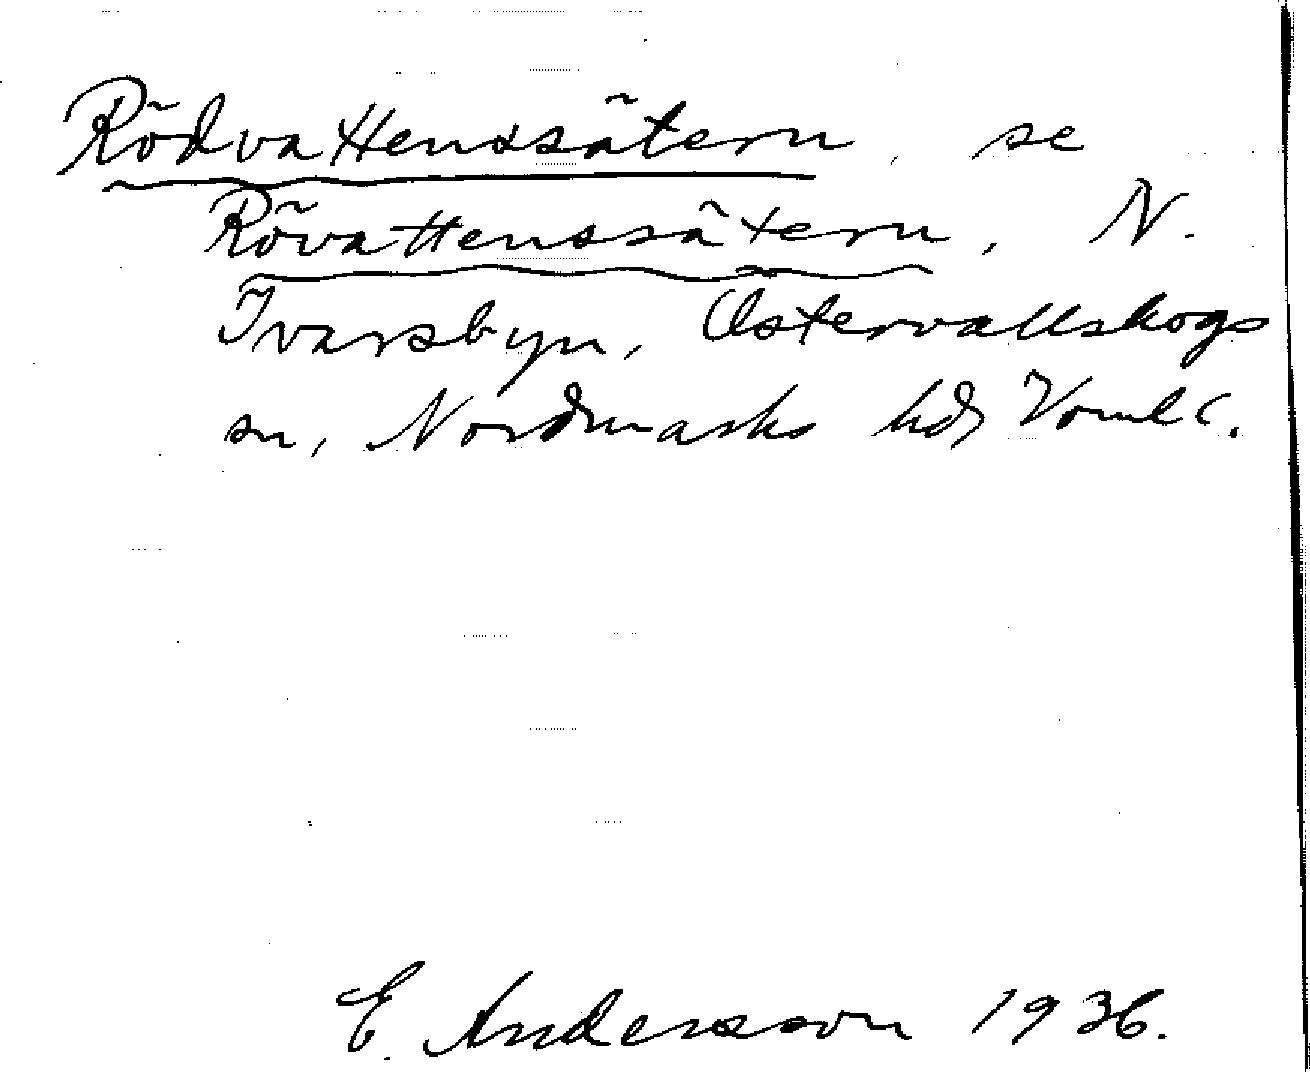 Rödvattenssätern, se
Rövattenssätern, N.
Ivarsbyn, Östervallskogs
sn, Nordmarks hd, Vrml.
E. Andersson 1936.